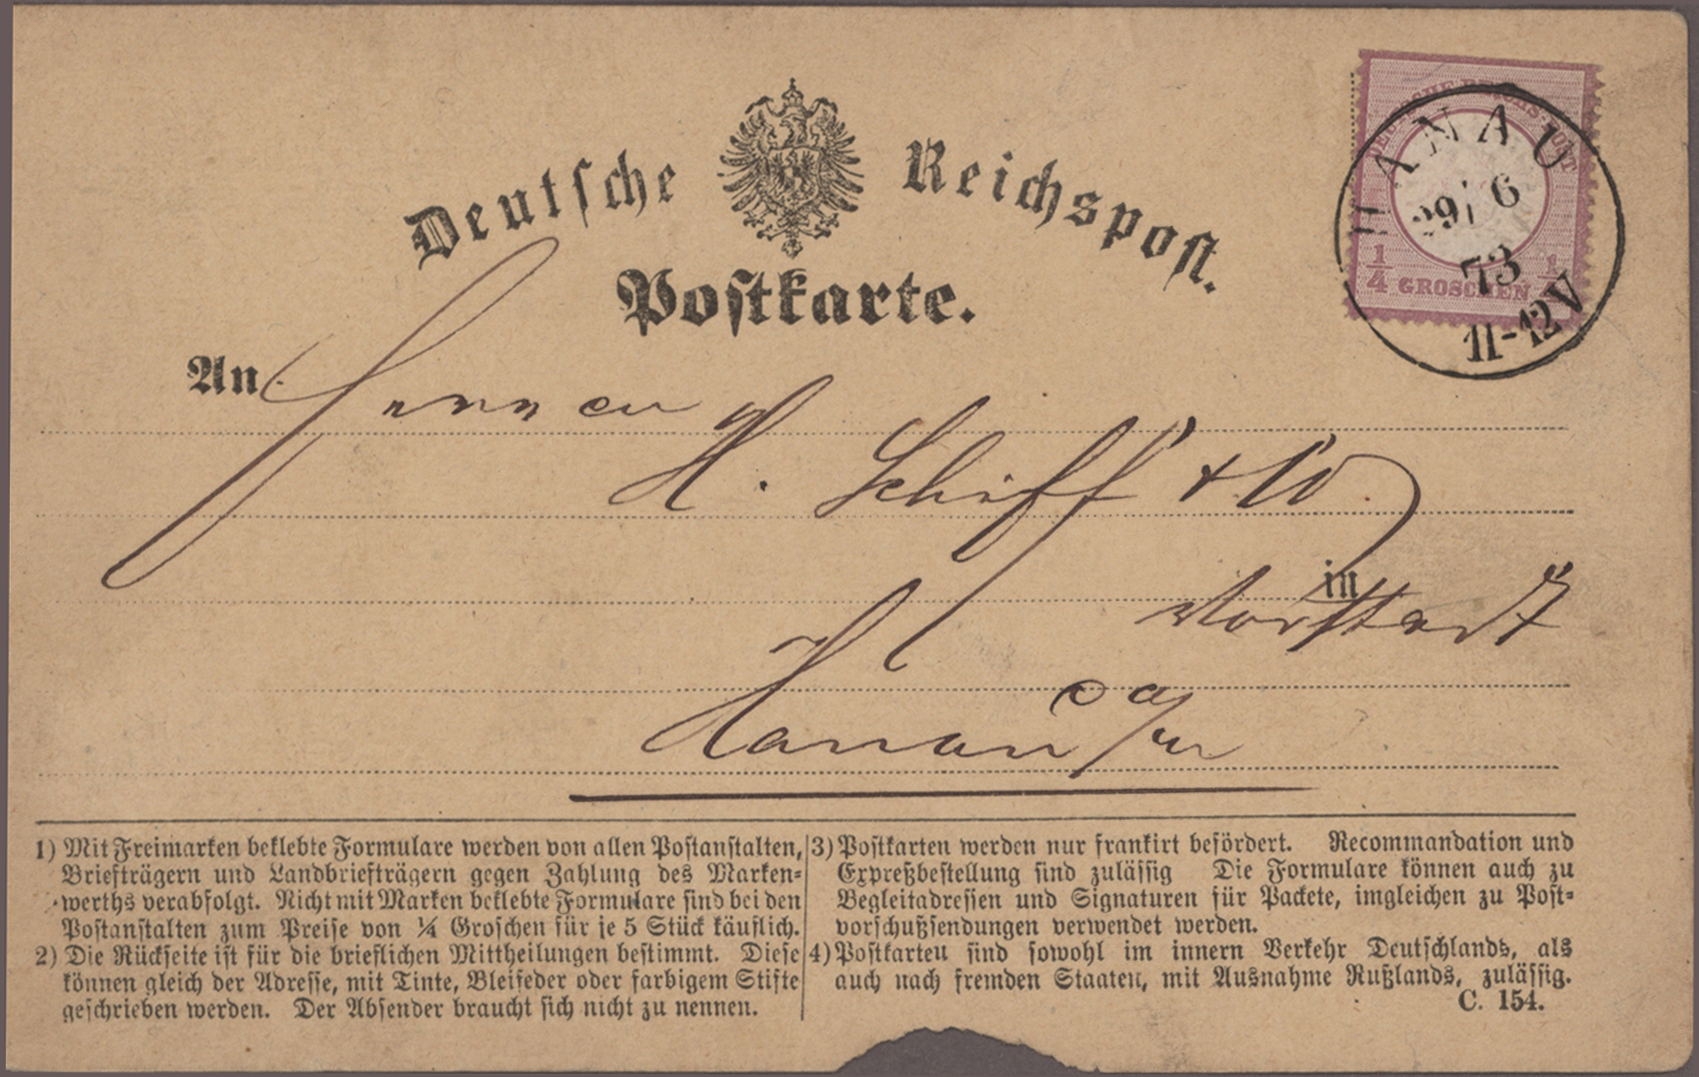 Deutsche Reichspost.
Postkarte.
DEUTSCHE REICHS-POST
1/4 GROSCHEN
HANAU
29/6
73
11-12V
An
Herren
H. Schiff & Co.
in
Vorstadt
Hanau
1) Mit Freimarken beklebte Formulare werden von allen Postanstalten,
Briefträgern und Landbriefträgern gegen Zahlung des Marken-
werths verabfolgt. Nicht mit Marken beklebte Formulare sind bei den
Postanstalten zum Preise von ¼ Groschen für je 5 Stück käuflich.
2) Die Rückseite ist für die brieflichen Mittheilungen bestimmt. Diese
können gleich der Adresse, mit Tinte, Bleifeder oder farbigem Stifte
geschrieben werden. Der Absender braucht sich nicht zu nennen.
3) Postkarten werden nur frankirt befördert. Recommandation und
Expreßbestellung sind zulässig Die Formulare können auch zu
Begleitadressen und Signaturen für Packete, imgleichen zu Post-
vorschußsendungen verwendet werden.
4) Postkarten sind sowohl im innern Verkehr Deutschlands, als
auch nach fremden Staaten, mit Ausnahme Rußlands, zulässig.
C. 154.